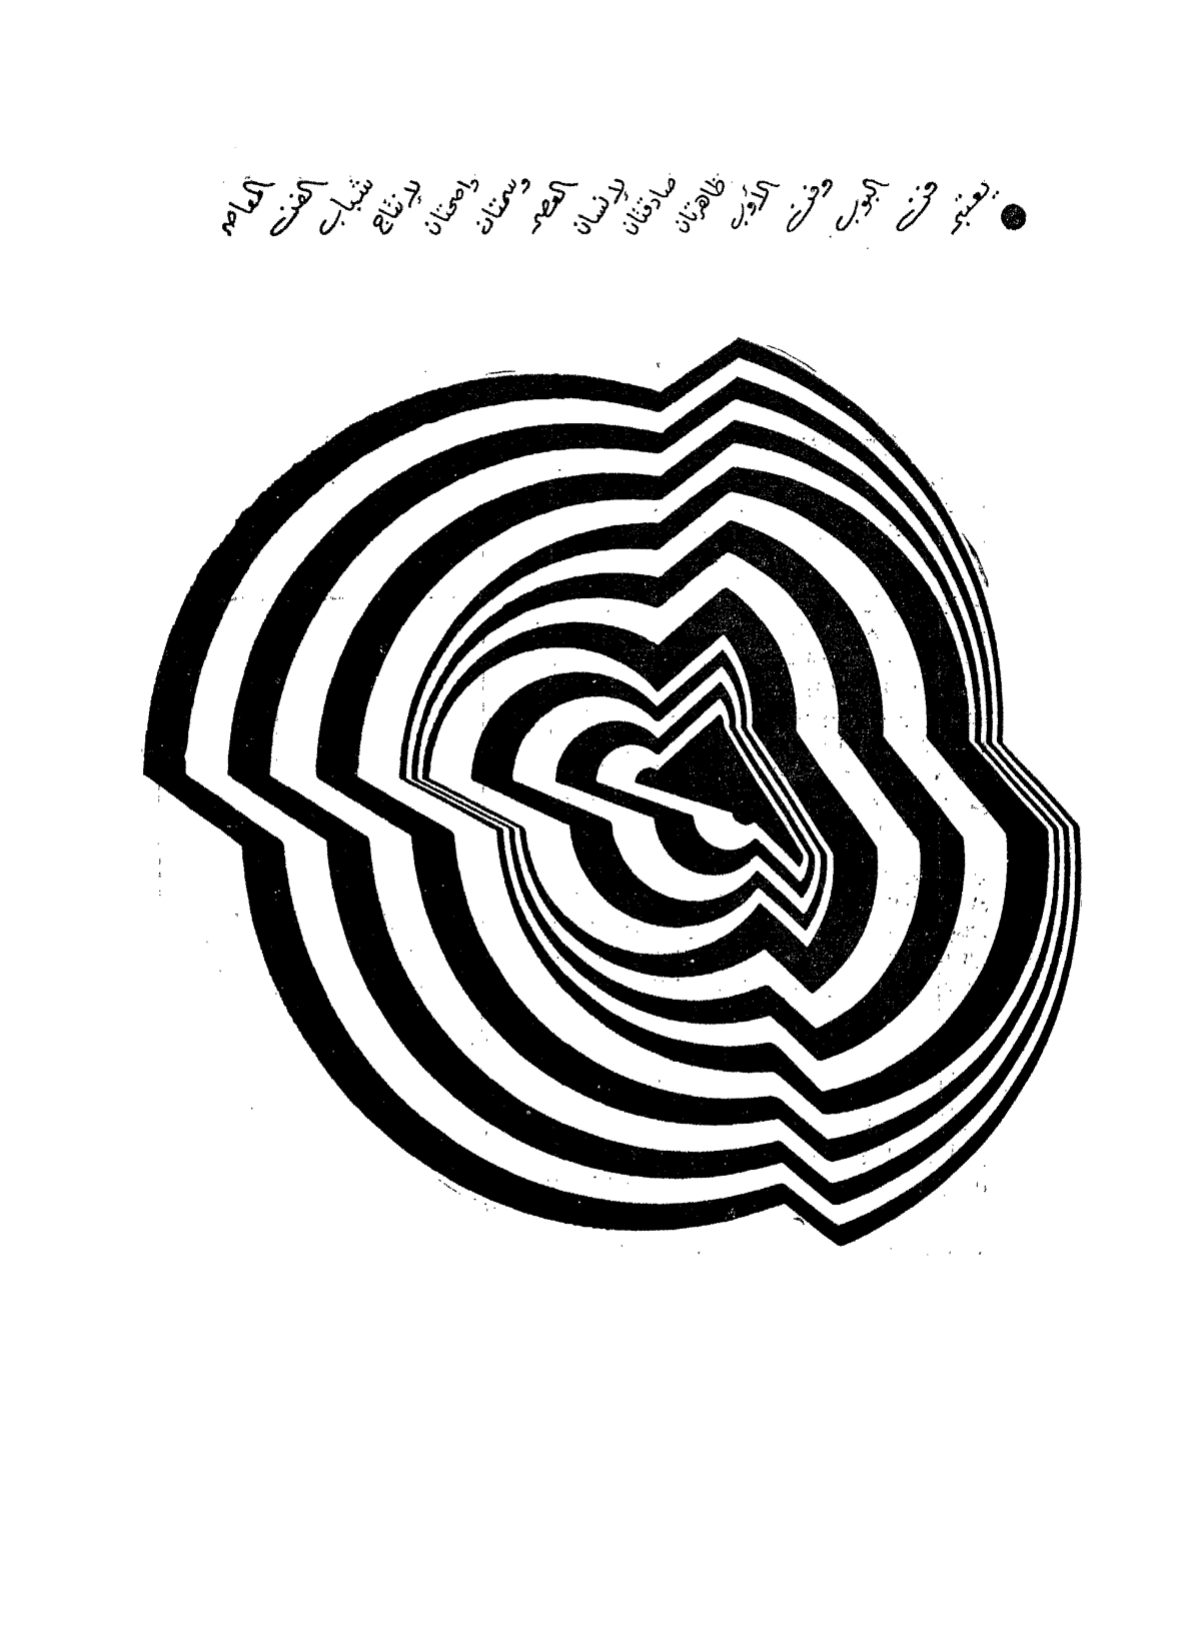 ● يعتبر فن البوب وفن الأوب ظاهرتان صادقتان لإنسان العصر وسمتان واضحتان لإنتاج شباب الفن المعاصر